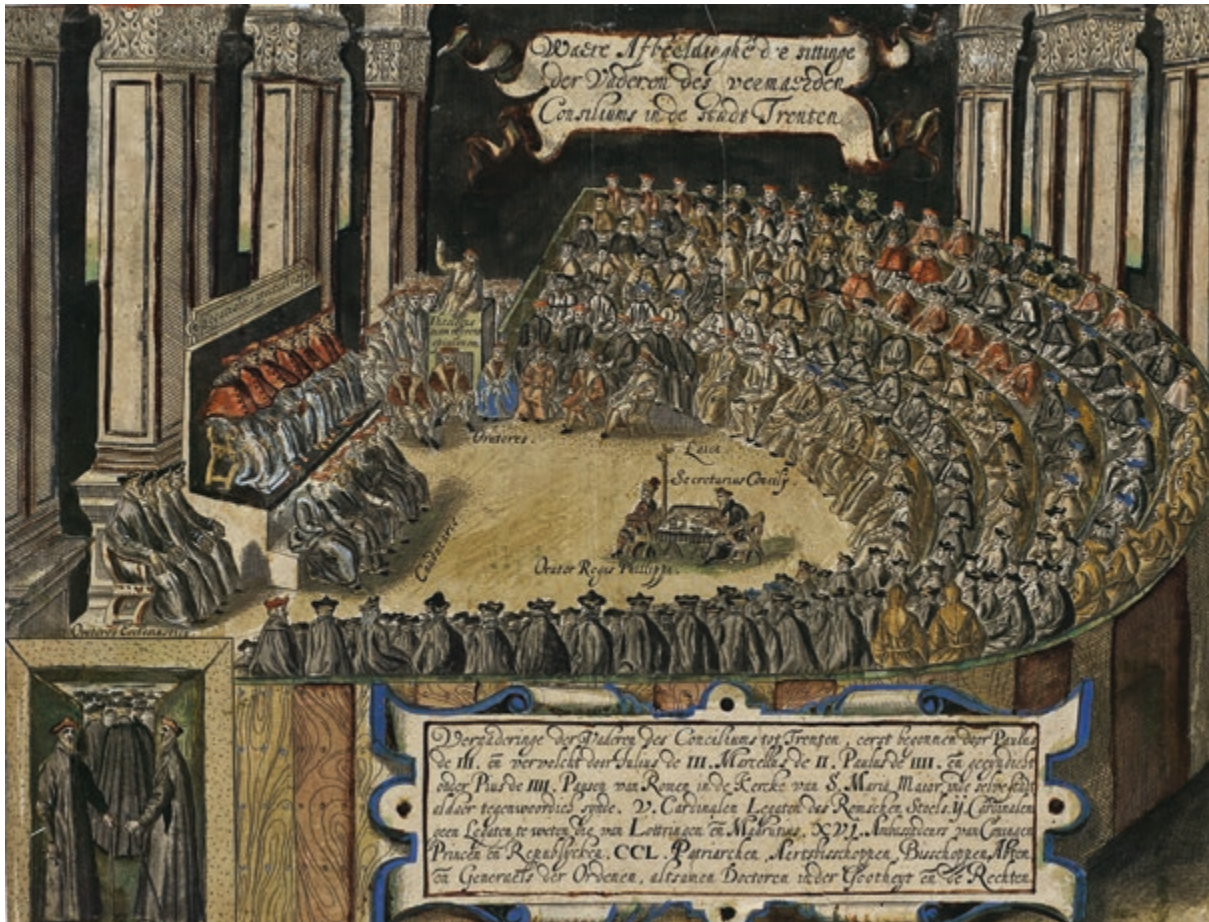 Waere Afbeeldighe d'e sittinge
der Vaderen des vermaerden
Consiliums in de stadt Trenten
Oratores.
Lator
Secretarius Concilÿ
Orator Regis Phillippi.
Vergaderinge der Vaderen des Conciliums tot Trenten, eerst begonnen door Paulus
de III. en vervolcht door Julius de III. Marcellus de II. Paulus de IIII. en geeyndicht
onder Pius de IIII. Pausen van Romen in de Kercke van S. Maria Maior inde selve stadt
aldaer tegenwoordich synde. V. Cardinalen Legaten des Romschen Stoels. ij. Cardinalen
geen Legaten te weten die van Lottringen en Madrutius. XVI. Ambassadeurs van Coningen
Princen en Republycken. CCL. Patriarchen, Aertsbisschoppen, Bisschoppen, Abten
en Generaels der Ordenen, altsamen Doctoren in der Gootheyt en de Rechten